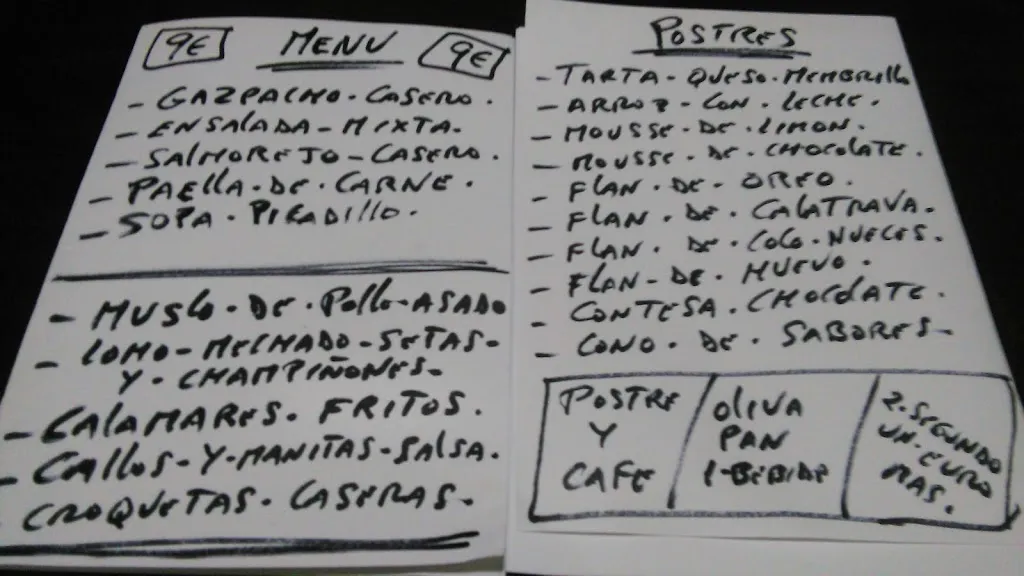 9€ MENU 9€
- GAZPACHO.CASERO.
- ENSALADA-MIXTA.
- SALMOREJO-CASERO.
- PAELLA.DE.CARNE.
- SOPA.PICADILLO.
- MUSLO.DE.POLLO-ASADO
- LOMO-MECHADO-SETAS-
Y-CHAMPIÑONES-
- CALAMARES.FRITOS.
- CALLOS-Y-MANITAS-SALSA.
- CROQUETAS.CASERAS.
POSTRES
- TARTA-QUESO-MEMBRILLO
- ARROZ-CON.LECHE.
- MOUSSE.DE.LIMON.
- MOUSSE.DE.CHOCOLATE.
- FLAN.DE.OREO.
- FLAN.DE.CALATRAVA.
- FLAN.DE.COCO.NUECES.
- FLAN-DE.HUEVO.
- CONTESA.CHOCOLATE.
- CONO.DE.SABORES-
POSTRE
Y
CAFE
OLIVA
PAN
1-BEBIDA
2.SEGUNDO
UN.EURO
MAS.